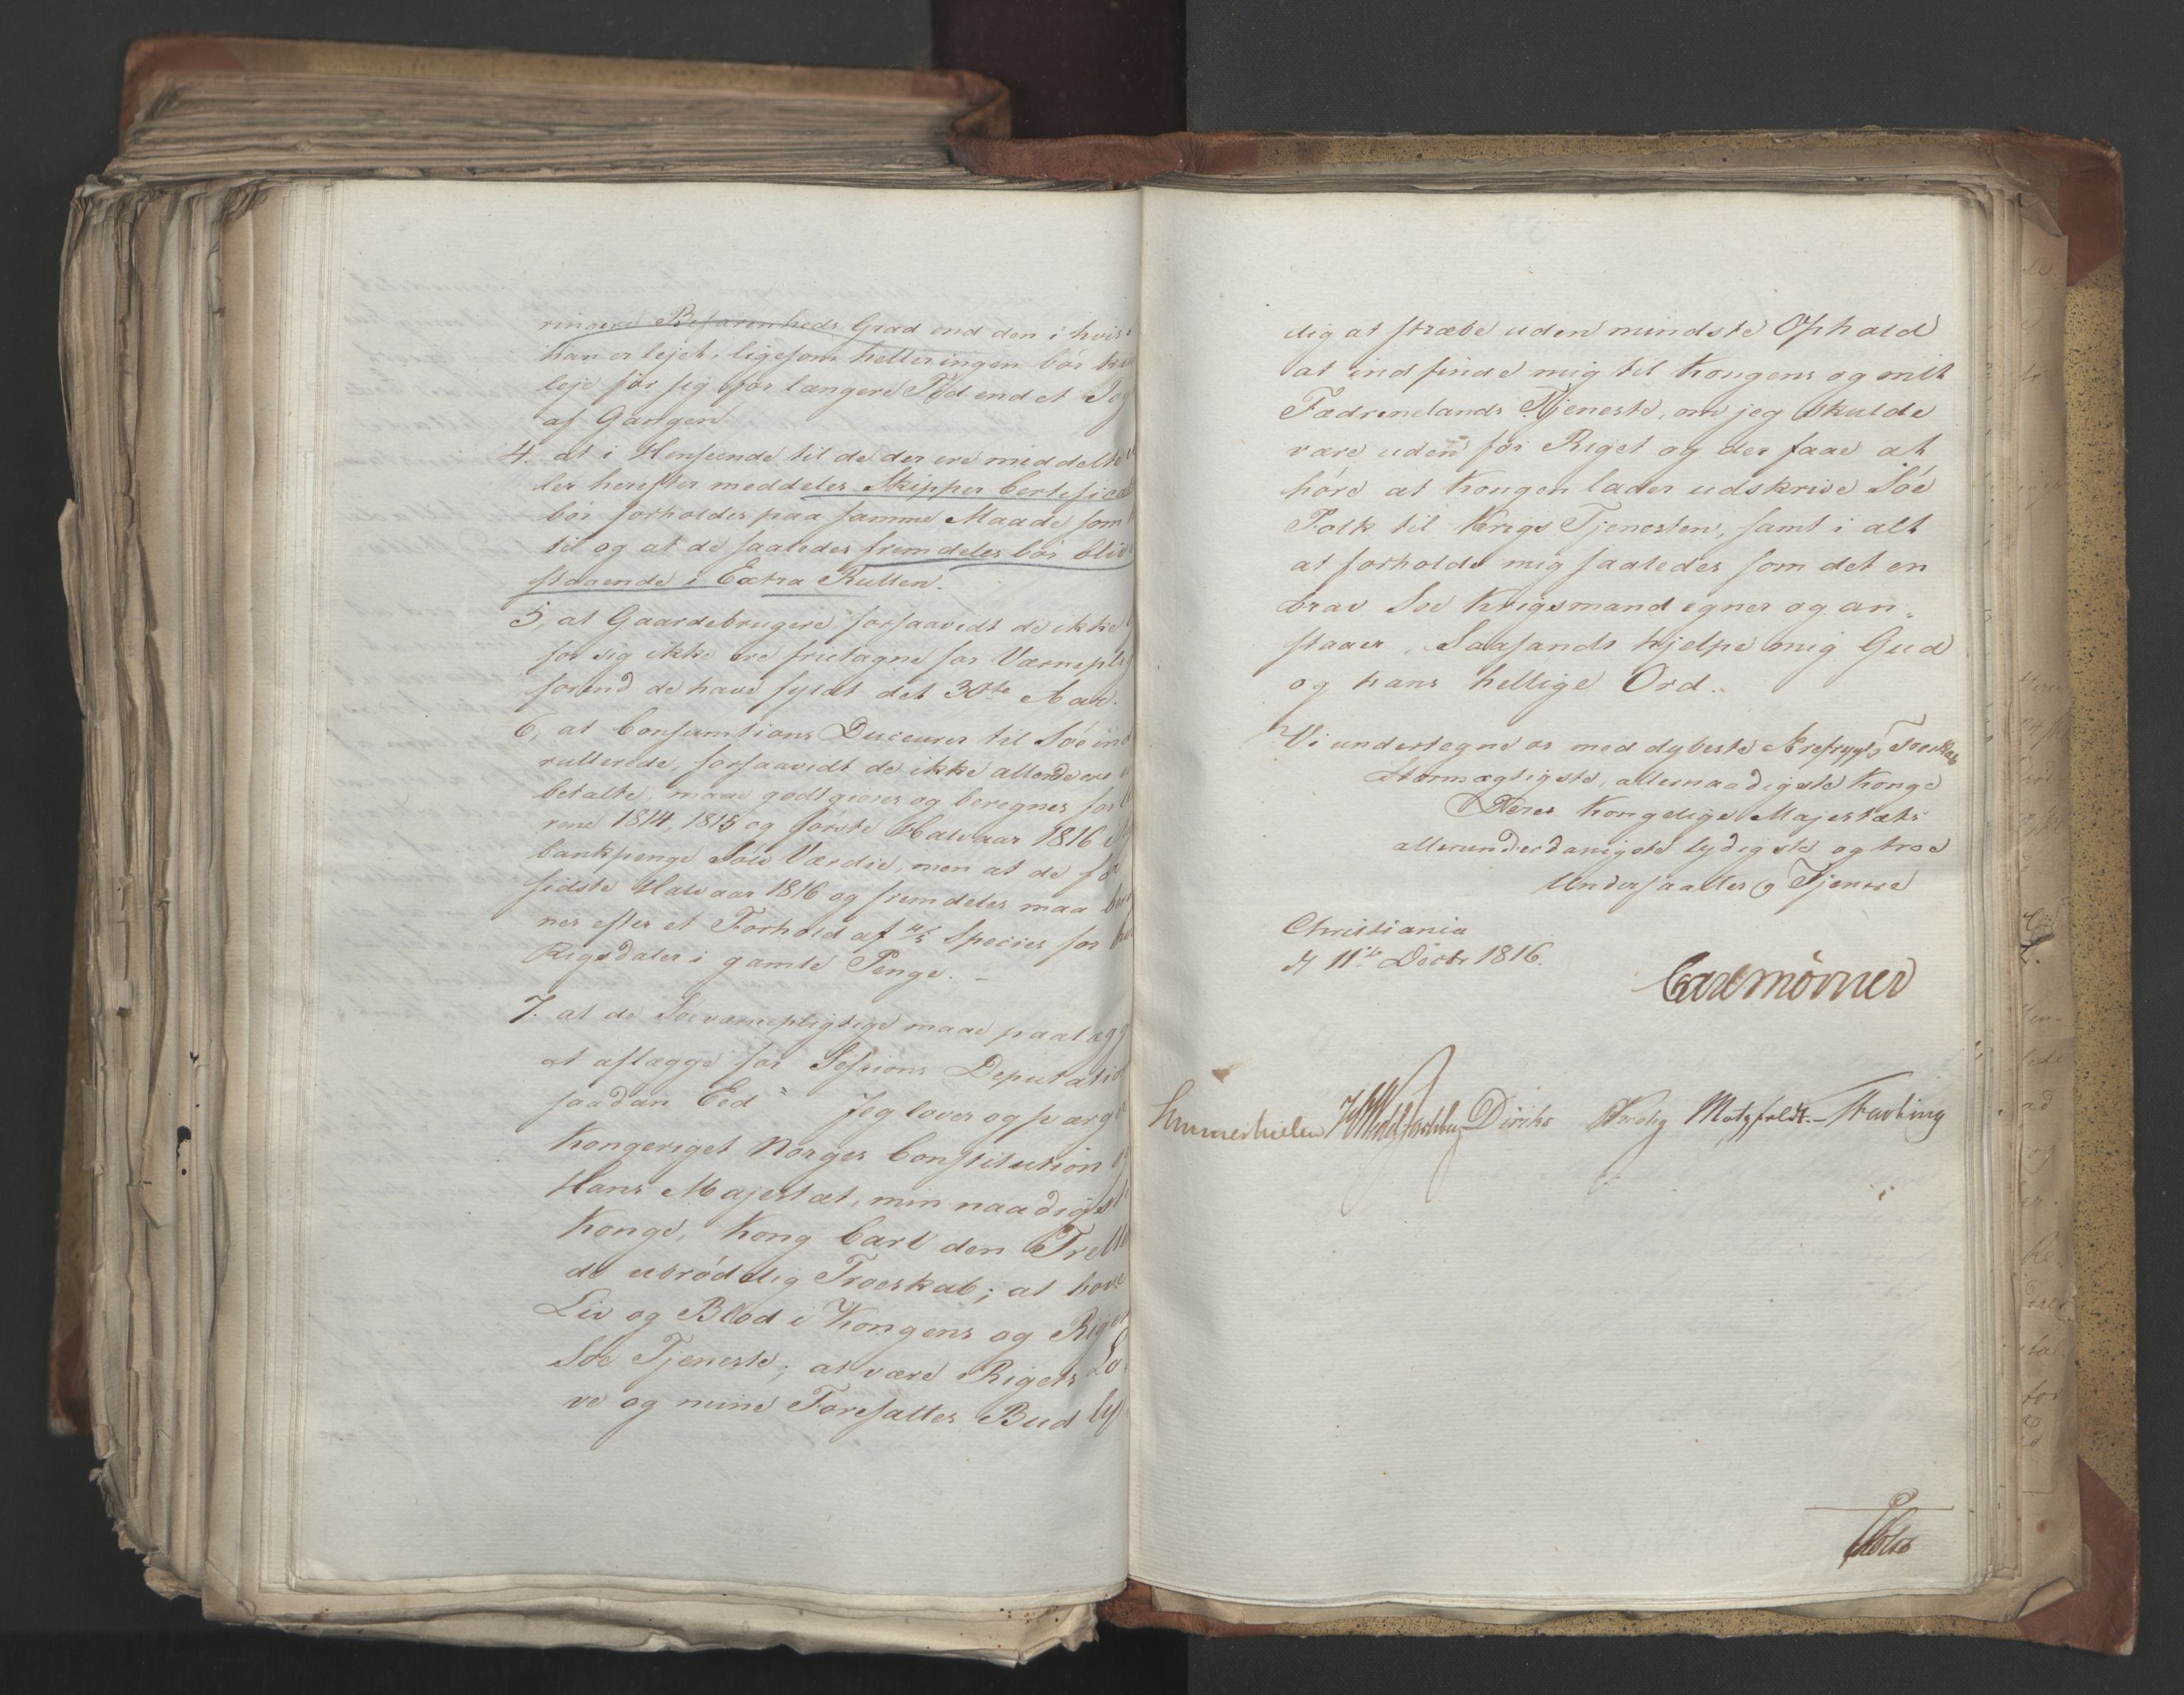 ringere Befarenheds Grad end den i hvis
han er lejet, ligesom heller ingen bör
leje for sig for længere Tid end et Tog
af Gangen
4. at i Henseende til de der ere meddelte
ler herefter meddeles Skipper Certificat
bör forholdes paa samme Maade som
til og at de saaledes fremdeles bör blive
staaende i Extra Rullen.
5, at Gaardebrugere, forsaavidt de ikke
for sig ikke ere frietagne for Værnepli
forend de have fyldt det 30te Aar.
6, at Consumtions Duceurer til Söe in
rullerede, forsaavidt de ikke allerede ere
betalte, maae godtgiöres og beregnes for
rene 1814, 1815 og förste Halvaar 1816 i
bankpenge Sölv Værdie, men at de for
sidste Halvaar 1816 og fremdeles maa
nes efter et Forhold af Species for
Rigsdaler i gamle Penge. -
7. at de Söeværnepligtige maae paalægg
at aflægge for Sessions Deputatio
saadan Eed " Jeg lover og sværg
Kongeriget Norges Constitution og
Hans Majestæt, min naadigste
Konge, Kong Carl den Trett
de ubrödelig Troeskab; at vove
Liv og Blod i Kongens og Rigets
Söe Tjeneste; at være Rigets Lo
ve og mine Foresattes Bud ly
dig at stræbe uden mindste Ophold
at indfinde mig til Kongens og mit
Fædrenelands Tjeneste, om jeg skulde
være uden for Riget og der faae at
höre at Kongen lader udskrive Söe
Folk til Krigs Tjenesten, samt i alt
at forholde mig saaledes som det en
brav Söe Krigsmand egner og an-
staaer. Saasandt hjelpe mig Gud
og hans hellige Ord.
Vi undertegne os med dybeste Ærefrygt, Troeskab
Stormægtigste, allernaadigste Konge
Deres Kongelige Majestæts
allerunderdanigste lydigste og troe
Undersaatter og Tjenere
Christiania
d 11te Decbr 1816.
Carl Mörner
Sommerhielm Diriks Krohg Motzfeldt. -
Holst